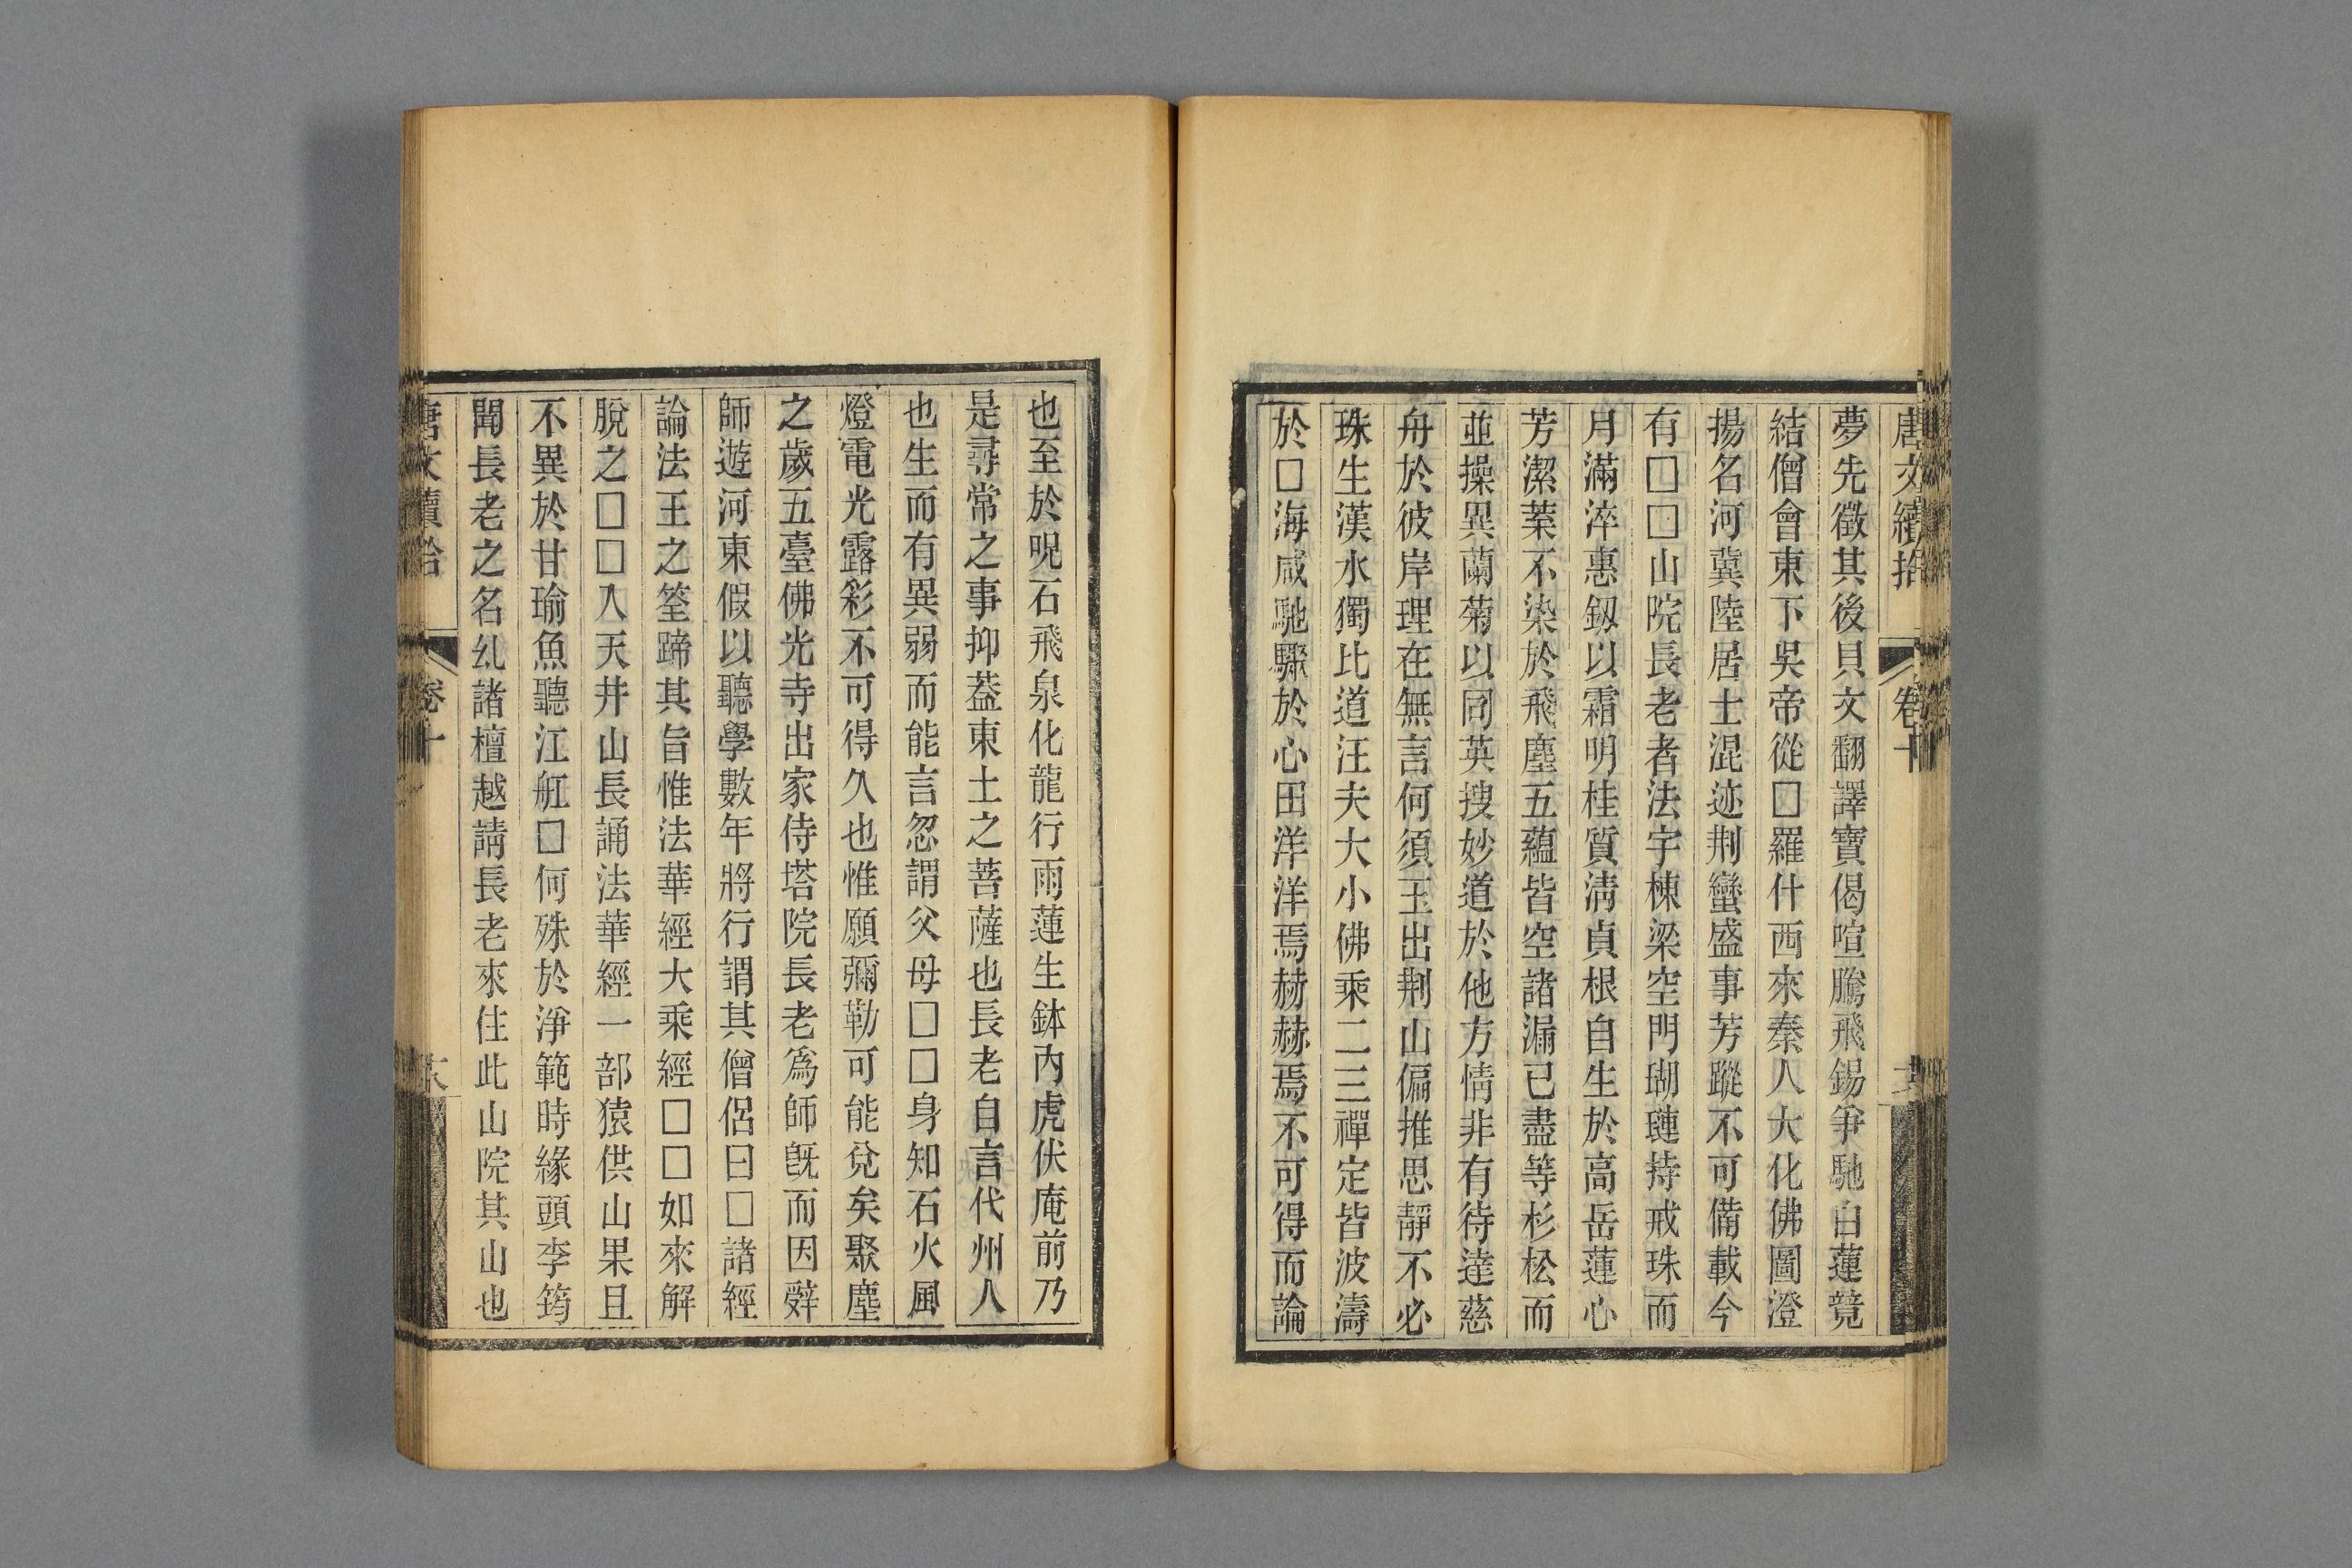 唐文續拾 卷十
夢先徵其後貝文翻譯寶偈喧騰飛錫爭馳白蓮競
結僧會東下吳帝從□羅什西來秦人大化佛圖澄
揚名河冀陸居士混迹荆蠻盛事芳蹤不可備載今
有□□山院長老者法宇棟梁空門瑚璉持戒珠而
月滿淬惠釼以霜明桂質淸貞根自生於高岳蓮心
芳潔葉不染於飛塵五蘊皆空諸漏已盡等杉松而
並操異蘭菊以同英搜妙道於他方情非有待達慈
舟於彼岸理在無言何須玉出荆山偏推思靜不必
珠生漢水獨比道汪夫大小佛乘二三禪定皆波濤
於□海咸馳驟於心田洋洋焉赫赫焉不可得而論
也至於呪石飛泉化龍行雨蓮生鉢內虎伏庵前乃
是尋常之事抑葢東土之菩薩也長老自言代州人
也生而有異弱而能言忽謂父母□□身知石火風
燈電光露彩不可得久也惟願彌勒可能兌矣聚塵
之歲五臺佛光寺出家侍塔院長老爲師旣而因辭
師遊河東假以聽學數年將行謂其僧侶曰□諸經
論法王之筌蹄其旨惟法華經大乘經□□如來解
脫之□□入天井山長誦法華經一部猿供山果且
不異於甘瑜魚聽江舡□何殊於淨範時緣頭李筠
聞長老之名糺諸檀越請長老來住此山院其山也
唐文續拾 卷十